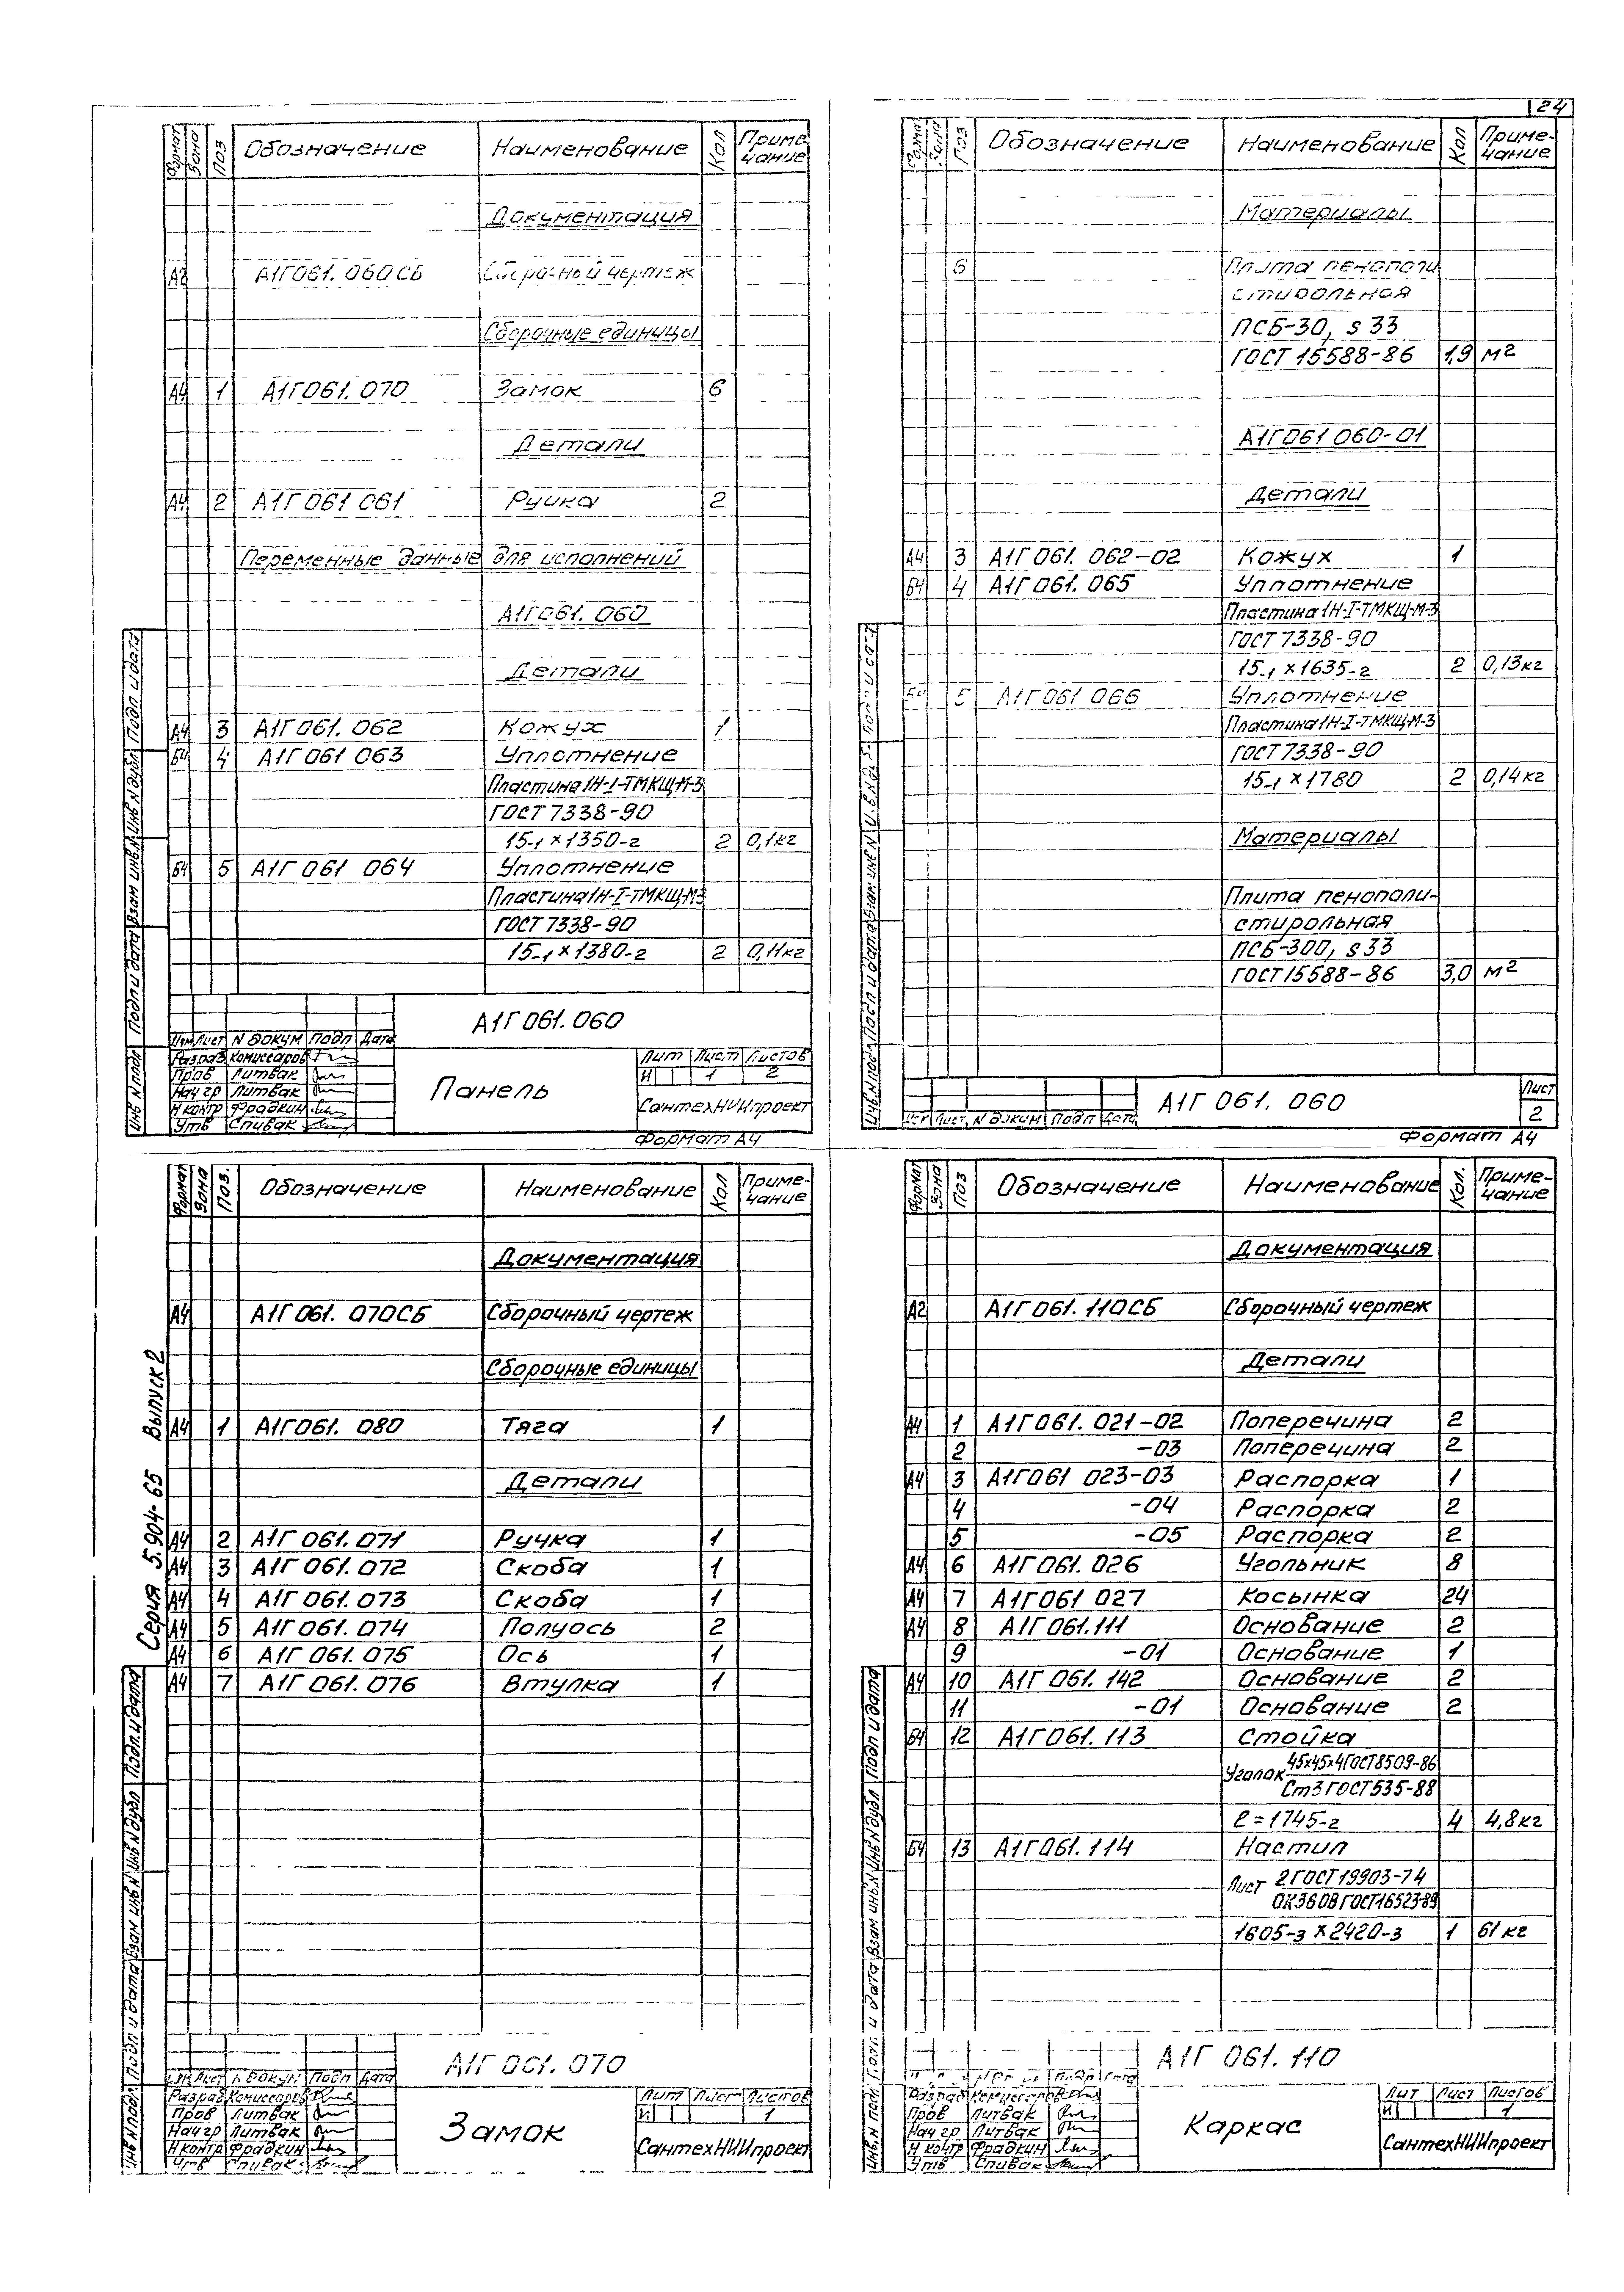 24
Формат Зона Поз Обозначение Наименование Кол Приме-
чание
Документация
А2 А1Г061.060СБ Сборочный чертеж
Сборочные единицы
А4 1 А1Г061.070 Замок 6
Детали
А4 2 А1Г061 061 Ручка 2
Переменные данные для исполнений
А1Г061.060
Детали
А4 3 А1Г061.062 Кожух 1
Б4 4 А1Г061 063 Уплотнение
Пластина 1Н-I-ТМКЩ-М-3
ГОСТ 7338-90
15-1 × 1350-2 2 0,1кг
Б4 5 А1Г061 064 Уплотнение
Пластина 1Н-I-ТМКЩ-М-3
ГОСТ 7338-90
15-1 × 1380-2 2 0,11кг
А1Г061.060
Изм Лист N докум Подп Дата
Разраб Комиссаров
Пров Литвак
Нач гр Литвак
Н контр Фрадкин
Утв Спивак
Панель
Лит Лист Листов
И 1 2
СантехНИИпроект
Формат А4
Инв N подл Подп и дата Взам инв.N Инв N дубл Подп и дата
Формат Зона Поз Обозначение Наименование Кол Приме-
чание
Материалы
6 Плита пенополи-
стирольная
ПСБ-30, s 33
ГОСТ 15588-86 1,9 м2
А1Г061 060-01
Детали
А4 3 А1Г061.062-02 Кожух 1
Б4 4 А1Г061.065 Уплотнение
Пластина 1Н-I-ТМКЩ-М-3
ГОСТ 7338-90
15-1 × 1635-2 2 0,13кг
Б4 5 А1Г061 066 Уплотнение
Пластина 1Н-I-ТМКЩ-М-3
ГОСТ 7338-90
15-1 × 1780 2 0,14кг
Материалы
Плита пенополи-
стирольная
ПСБ-300, s 33
ГОСТ 15588-86 3,0 м2
А1Г061.060
Лист
2
Изм Лист N докум Подп Дата
Формат А4
Формат Зона Поз. Обозначение Наименование Кол Приме-
чание
Документация
А4 А1Г061.070СБ Сборочный чертеж
Сборочные единицы
А4 1 А1Г061.080 Тяга 1
Детали
А4 2 А1Г061.071 Ручка 1
А4 3 А1Г061.072 Скоба 1
А4 4 А1Г061.073 Скоба 1
А4 5 А1Г061.074 Полуось 2
А4 6 А1Г061.075 Ось 1
А4 7 А1Г061.076 Втулка 1
Серия 5.904-65 Выпуск 2
А1Г061.070
Лист N докум Подп Дата
Разраб Комиссаров
Пров Литвак
Нач гр Литвак
Н контр Фрадкин
Утв Спивак
Замок
Лит Лист Листов
И 1
СантехНИИпроект
Инв N подл Подп и дата Взам инв.N Инв N дубл Подп.и дата
Формат Зона Поз Обозначение Наименование Кол. Приме-
чание
Документация
А2 А1Г061.110СБ Сборочный чертеж
Детали
А4 1 А1Г061.021-02 Поперечина 2
2 -03 Поперечина 2
А4 3 А1Г061 023-03 Распорка 1
4 -04 Распорка 2
5 -05 Распорка 2
А4 6 А1Г061.026 Угольник 8
А4 7 А1Г061 027 Косынка 24
А4 8 А1Г061.111 Основание 2
9 -01 Основание 1
А4 10 А1Г061.142 Основание 2
11 -01 Основание 2
Б4 12 А1Г061.113 Стойка
Уголок 45х45х4 ГОСТ 8509-86
Ст3 ГОСТ 535-88
ℓ=1745-2 4 4,8кг
Б4 13 А1Г061.114 Настил
Лист 2 ГОСТ 19903-74
ОК360В ГОСТ 16523-89
1605-3 × 2420-3 1 61 кг
А1Г061.110
Разраб Комиссаров
Пров Литвак
Нач гр Литвак
Н контр Фрадкин
Утв Спивак
Каркас
Лит Лист Листов
И 1
СантехНИИпроект
Инв.N подл Подп и дата Взам инв.N Инв N дубл Подп и дата